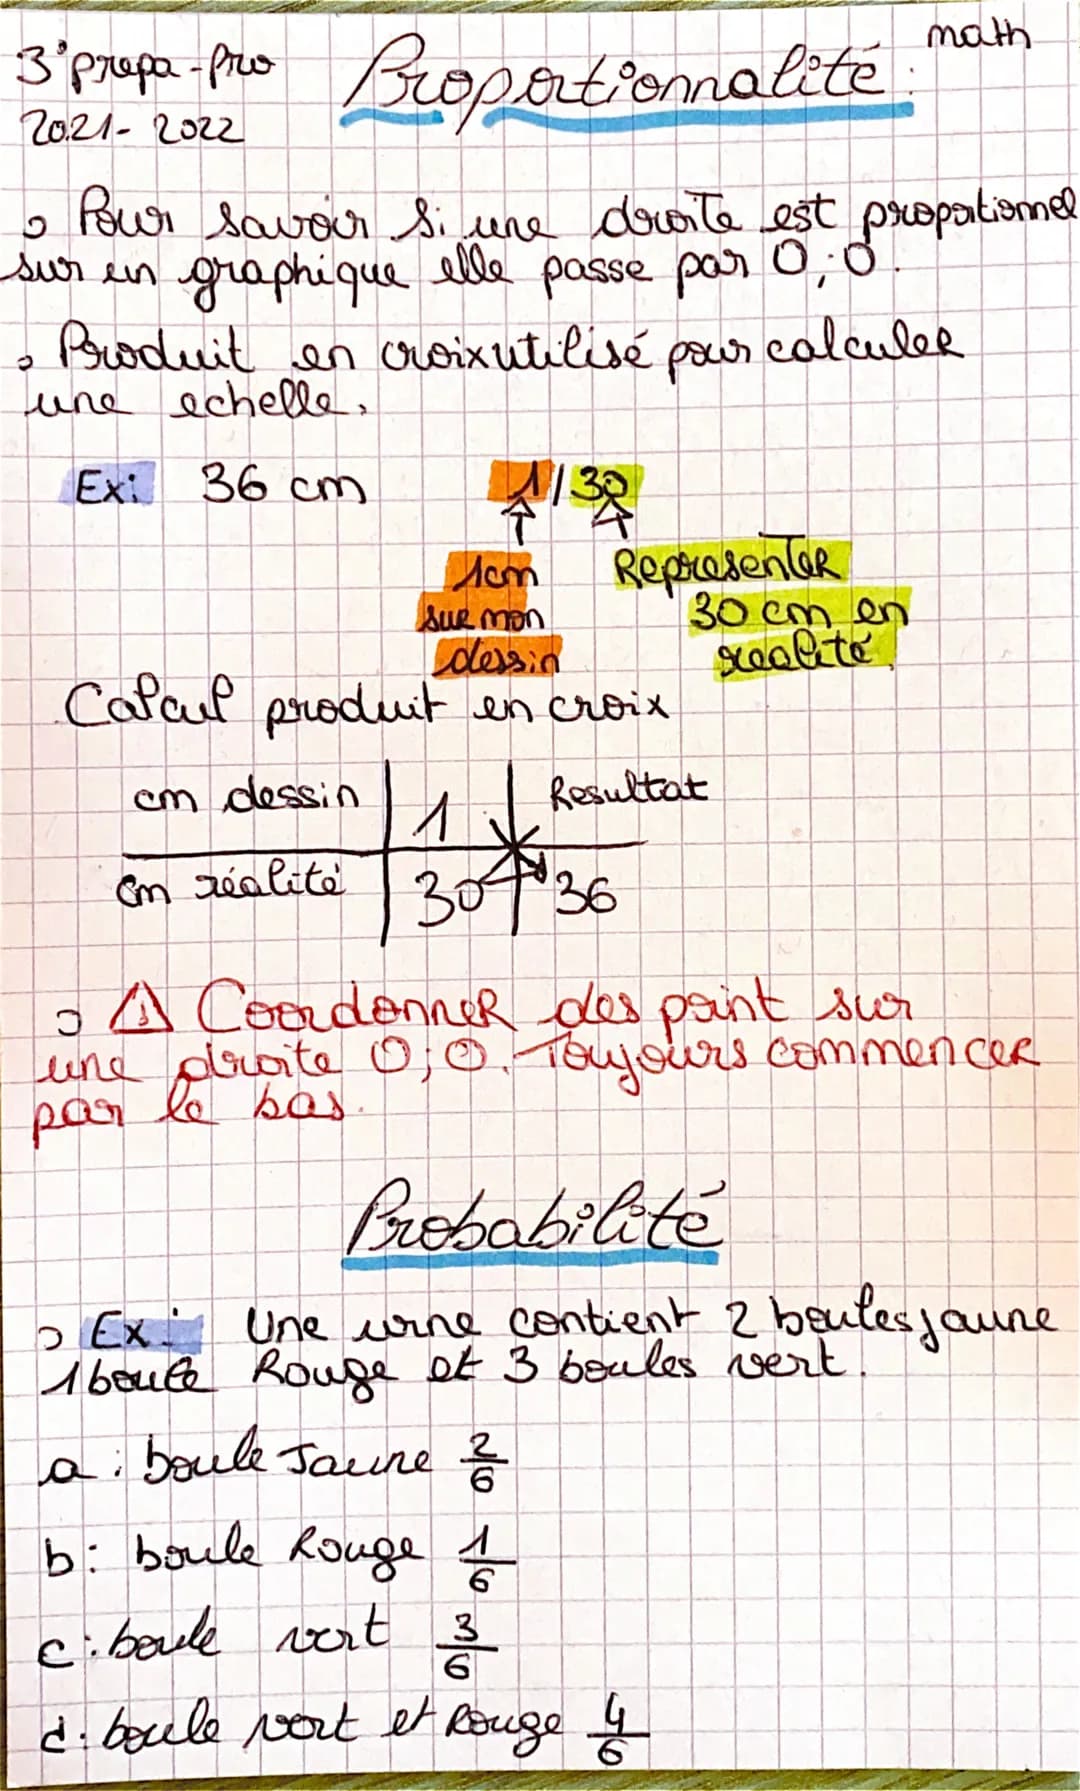 math
3° prepa-pro
Proportionnalité :
2021-2022
Pour savoir si une droite est proportionnel
sur un graphique elle passe par 0;0.
Produit en croix utilisé pour calculer
une echelle.
Ex: 36 cm 1/30
1cm
sur mon
dessin
Representer
30 cm en
réalité
Calcul produit en croix
cm dessin 1 Resultat
cm réalité 30 36
⚠ Coordonner des point sur
une droite 0;0. Toujours commencer
par le bas.
Probabilité
Ex: Une urne contient 2 boules jaune
1 boule Rouge et 3 boules vert.
a: boule Jaune 2/6
b: boule Rouge 1/6
c: boule vert 3/6
d: boule vert et Rouge 4/6